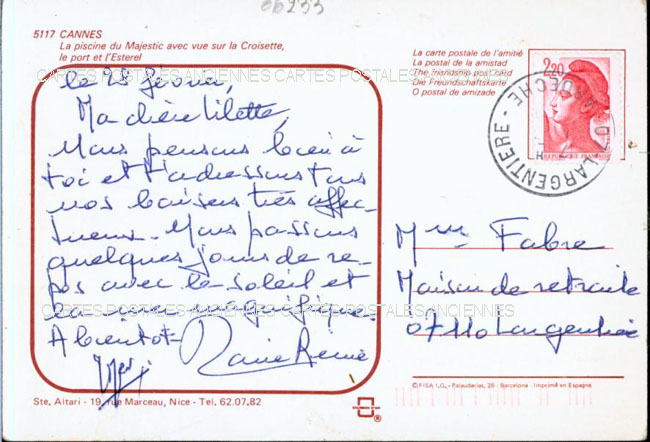 06233
5117 CANNES
La piscine du Majestic avec vue sur la Croisette,
le port et l'Esterel
La carte postale de l'amitié
La postal de la amistad
The friendship post card
Die Freundschaftskarte
O postal de amizade
2,20
REPUBLIQUE FRANÇAISE
07 LARGENTIERE - ARDECHE
CARTES POSTALES ANCIENNES CARTES POSTALES ANCIENNES
le 25 février,
Ma chère Lilette,
Nous pensons bien à
toi et t'adressons tous
nos baisers très affec-
tueux. Nous passons
quelques jours de re-
pos avec le soleil et
la mer magnifique.
A bientôt
Marie Renée
Mme Fabre
Maison de retraite
07110 Largentière
CARTES POSTALES ANCIENNES CARTES POSTALES ANCIENNES
© FISA I.G. - Palaudarias, 26 - Barcelona - Imprimé en Espagne
Ste. Altari - 19, rue Marceau, Nice - Tel. 62.07.82